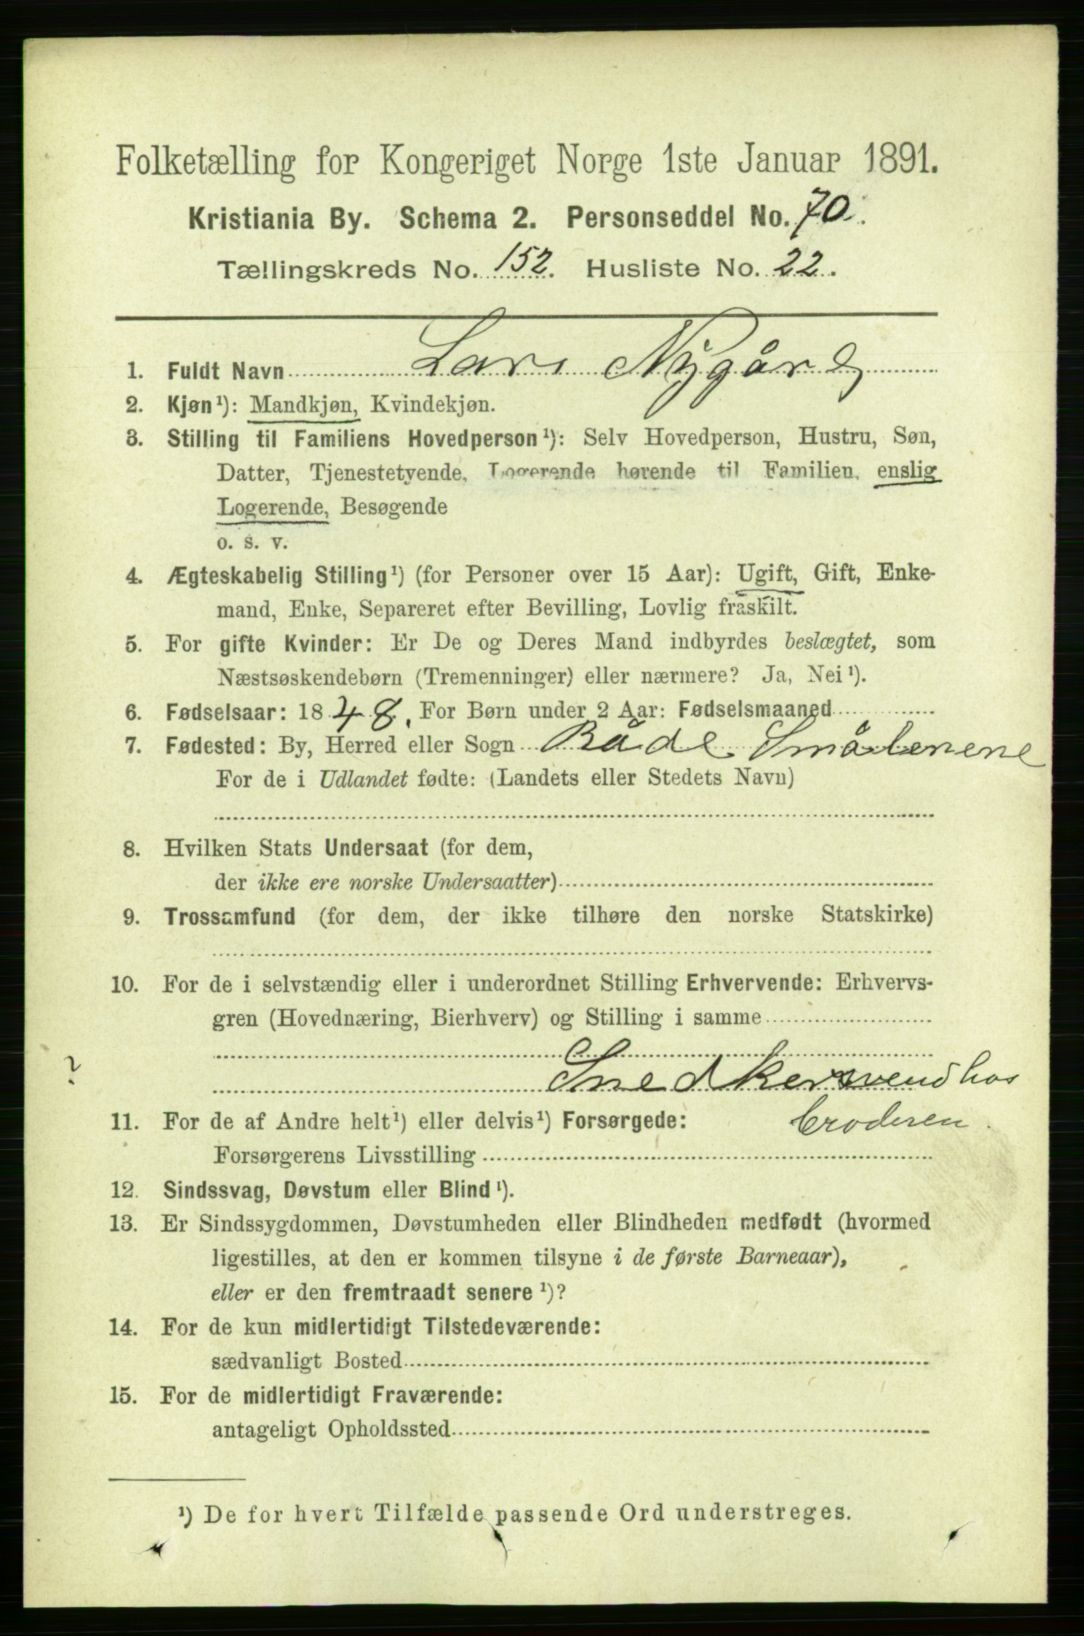 Folketælling for Kongeriget Norge 1ste Januar 1891.
Kristiania By. Schema 2. Personseddel No. 70.
Tællingskreds No. 152. Husliste No. 22.
1. Fuldt Navn Lars Nygård
2. Kjøn¹): Mandkjøn, Kvindekjøn.
3. Stilling til Familiens Hovedperson¹): Selv Hovedperson, Hustru, Søn,
Datter, Tjenestetyende, Logerende hørende til Familien, enslig
Logerende, Besøgende
o. s. v.
4. Ægteskabelig Stilling¹) (for Personer over 15 Aar): Ugift, Gift, Enke-
mand, Enke, Separeret efter Bevilling, Lovlig fraskilt.
5. For gifte Kvinder: Er De og Deres Mand indbyrdes beslægtet, som
Næstsøskendebørn (Tremenninger) eller nærmere? Ja, Nei¹).
6. Fødselsaar: 1848. For Børn under 2 Aar: Fødselsmaaned
7. Fødested: By, Herred eller Sogn Råde Smålenene
For de i Udlandet fødte: (Landets eller Stedets Navn)
8. Hvilken Stats Undersaat (for dem,
der ikke ere norske Undersaatter)
9. Trossamfund (for dem, der ikke tilhøre den norske Statskirke)
10. For de i selvstændig eller i underordnet Stilling Erhvervende: Erhvervs-
gren (Hovednæring, Bierhverv) og Stilling i samme
? Snedkersvend hos
11. For de af Andre helt¹) eller delvis¹) Forsørgede:
Forsørgerens Livsstilling
12. Sindssvag, Døvstum eller Blind¹).
13. Er Sindssygdommen, Døvstumheden eller Blindheden medfødt (hvormed
ligestilles, at den er kommen tilsyne i de første Barneaar),
eller er den fremtraadt senere¹)?
14. For de kun midlertidigt Tilstedeværende:
sædvanligt Bosted
15. For de midlertidigt Fraværende:
antageligt Opholdssted
¹) De for hvert Tilfælde passende Ord understreges.